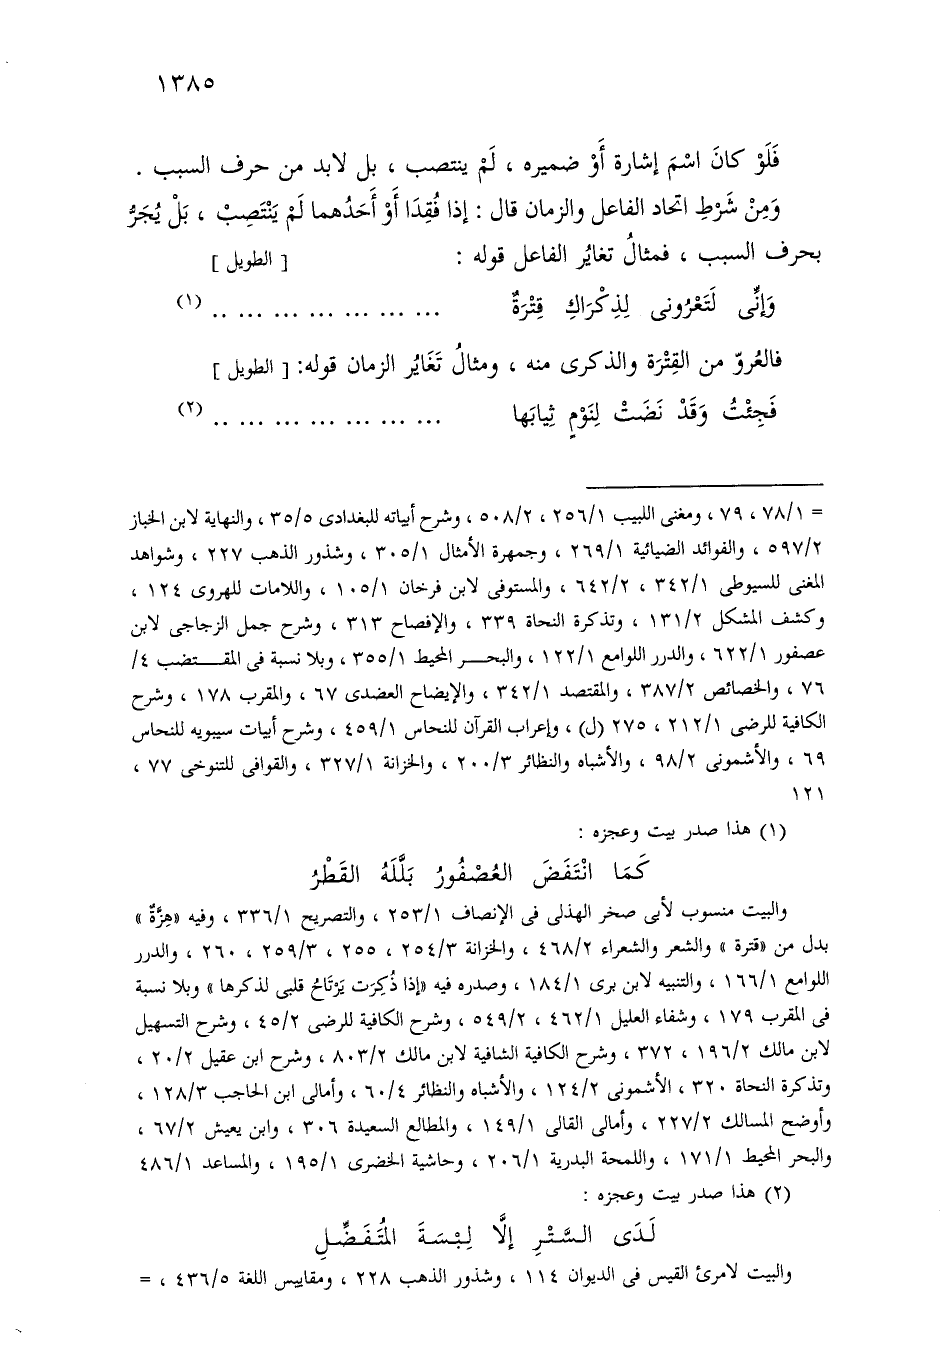 ١٣٨٥
فَلَوْ كانَ اسْمَ إشارة أَوْ ضميره ، لَمْ ينتصب ، بل لابد من حرف السبب .
وَمِنْ شَرْطِ اتحاد الفاعل والزمان قال : إذا فُقِدَا أَوْ أَحَدُهما لَمْ يَنْتَصِبْ ، بَلْ يُجَرُّ
بحرف السبب ، فمثالُ تغايُر الفاعل قوله : [ الطويل ]
وَإنِّى لَتَعْرُونى لِذِكْرَاكِ فِتْرَةٌ ... ... ... ... ... ... .. (١)
فالعُروّ من الفِتْرَة والذكرى منه ، ومثالُ تَغَايُر الزمان قوله: [ الطويل ]
فَجِئْتُ وَقَدْ نَضَتْ لِنَوْمٍ ثِيابَها ... ... ... ... ... ... .. (٢)
= ٧٨/١ ، ٧٩ ، ومغنى اللبيب ٢٥٦/١ ، ٥٠٨/٢ ، وشرح أبياته للبغدادى ٣٥/٥ ، والنهاية لابن الخباز
٥٩٧/٢ ، والفوائد الضيائية ٢٦٩/١ ، وجمهرة الأمثال ٣٠٥/١ ، وشذور الذهب ٢٢٧ ، وشواهد
المغنى للسيوطى ٣٤٢/١ ، ٦٤٢/٢ ، والمستوفى لابن فرخان ١٠٥/١ ، واللامات للهروى ١٢٤ ،
وكشف المشكل ١٣١/٢ ، وتذكرة النحاة ٣٣٩ ، والإفصاح ٣١٣ ، وشرح جمل الزجاجى لابن
عصفور ٦٢٢/١ ، والدرر اللوامع ١٢٢/١ ، والبحر المحيط ٣٥٥/١ ، وبلا نسبة فى المقتضب ٤/
٧٦ ، والخصائص ٣٨٧/٢ ، والمقتصد ٣٤٢/١ ، والإيضاح العضدى ٦٧ ، والمقرب ١٧٨ ، وشرح
الكافية للرضى ٢١٢/١ ، ٢٧٥ (ل) ، وإعراب القرآن للنحاس ٤٥٩/١ ، وشرح أبيات سيبويه للنحاس
٦٩ ، والأشمونى ٩٨/٢ ، والأشباه والنظائر ٢٠٠/٣ ، والخزانة ٣٢٧/١ ، والقوافى للتنوخى ٧٧ ،
١٢١
(١) هذا صدر بيت وعجزه :
كَمَا انْتَفَضَ العُصْفُورُ بَلَّلَهُ القَطْرُ
والبيت منسوب لأبى صخر الهذلى فى الإنصاف ٢٥٣/١ ، والتصريح ٣٣٦/١ ، وفيه «هِزَّةٌ »
بدل من «فترة » والشعر والشعراء ٤٦٨/٢ ، والخزانة ٢٥٤/٣ ، ٢٥٥ ، ٢٥٩/٣ ، ٢٦٠ ، والدرر
اللوامع ١٦٦/١ ، والتنبيه لابن برى ١٨٤/١ ، وصدره فيه «إذا ذُكِرَت يَرْتَاحُ قلبى لذكرها » وبلا نسبة
فى المقرب ١٧٩ ، وشفاء العليل ٤٦٢/١ ، ٥٤٩/٢ ، وشرح الكافية للرضى ٤٥/٢ ، وشرح التسهيل
لابن مالك ١٩٦/٢ ، ٣٧٢ ، وشرح الكافية الشافية لابن مالك ٨٠٣/٢ ، وشرح ابن عقيل ٢٠/٢ ،
وتذكرة النحاة ٣٢٠ ، الأشمونى ١٢٤/٢ ، والأشباه والنظائر ٦٠/٤ ، وأمالى ابن الحاجب ١٢٨/٣ ،
وأوضح المسالك ٢٢٧/٢ ، وأمالى القالى ١٤٩/١ ، والمطالع السعيدة ٣٠٦ ، وابن يعيش ٦٧/٢ ،
والبحر المحيط ١٧١/١ ، واللمحة البدرية ٢٠٦/١ ، وحاشية الخضرى ١٩٥/١ ، والمساعد ٤٨٦/١
(٢) هذا صدر بيت وعجزه :
لَدَى السَّتْرِ إلَّا لِبْسَةَ المُتَفَضِّلِ
والبيت لامرئ القيس فى الديوان ١١٤ ، وشذور الذهب ٢٢٨ ، ومقاييس اللغة ٤٣٦/٥ ، =